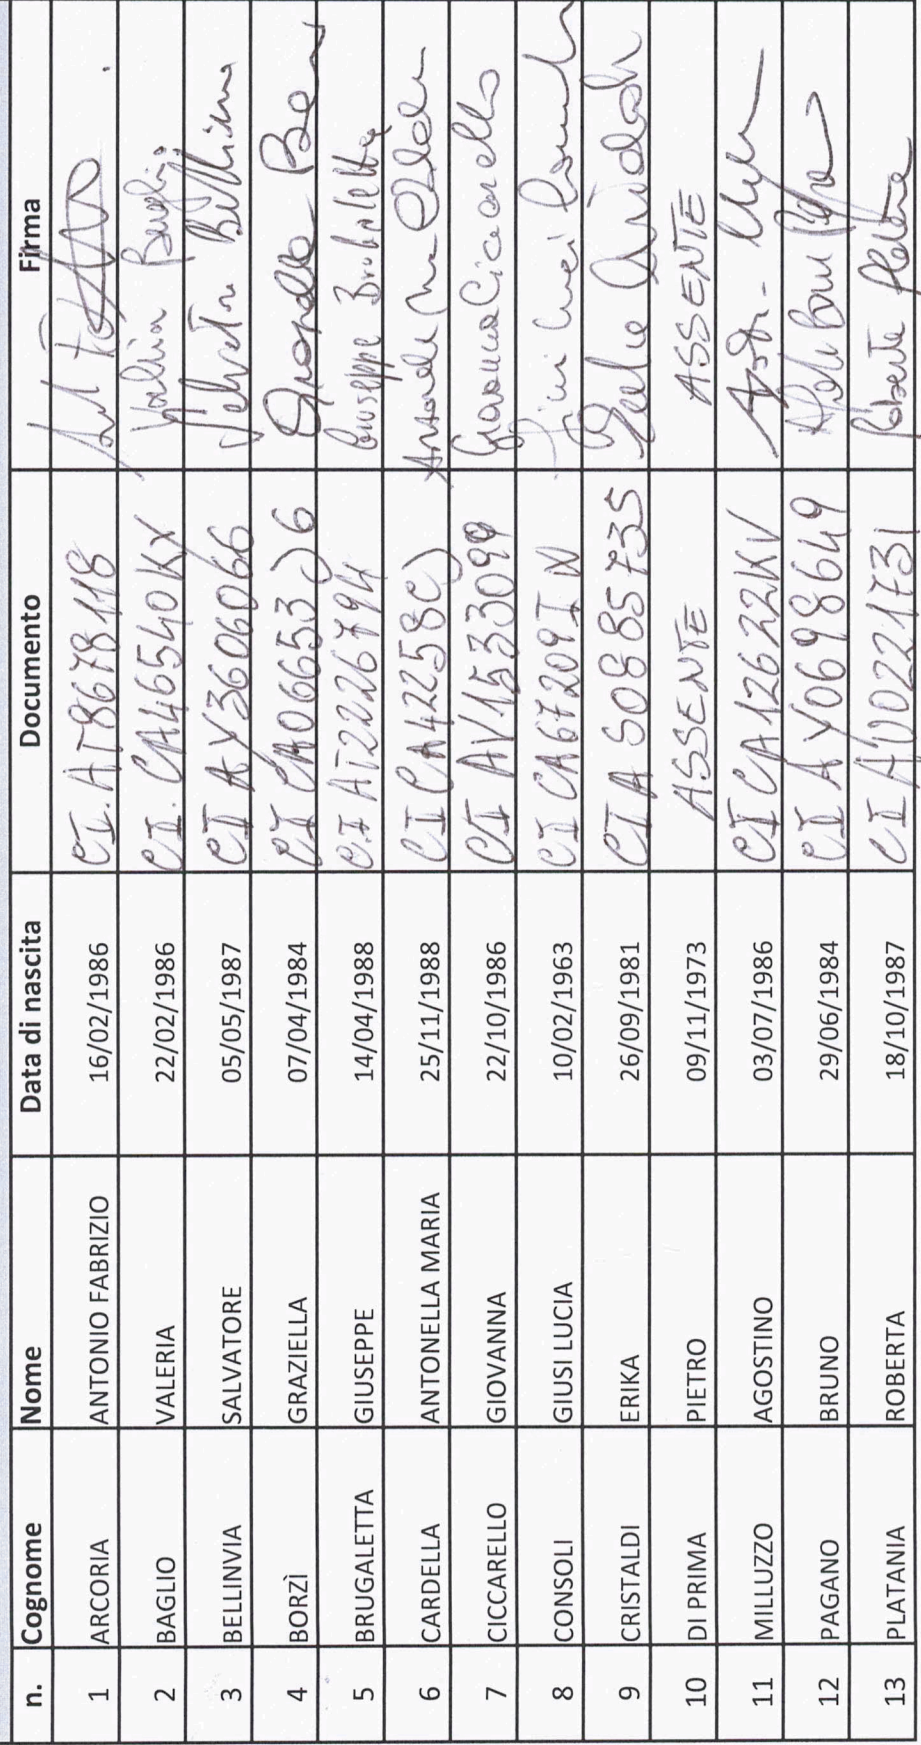 n. Cognome Nome Data di nascita Documento Firma
1 ARCORIA ANTONIO FABRIZIO 16/02/1986 CI. AT8678118
2 BAGLIO VALERIA 22/02/1986 CI. CA46540KX Valeria Baglio
3 BELLINVIA SALVATORE 05/05/1987 CI AY3606066 Salvatore Bellinvia
4 BORZÌ GRAZIELLA 07/04/1984 CI Graziella
5 BRUGALETTA GIUSEPPE 14/04/1988 C.I AT2226794 Giuseppe Brugaletta
6 CARDELLA ANTONELLA MARIA 25/11/1988 CI Antonella
7 CICCARELLO GIOVANNA 22/10/1986 CI AV1533099 Giovanna Ciccarello
8 CONSOLI GIUSI LUCIA 10/02/1963 CI CA67209IN
9 CRISTALDI ERIKA 26/09/1981 CI AS0885735
10 DI PRIMA PIETRO 09/11/1973 ASSENTE ASSENTE
11 MILLUZZO AGOSTINO 03/07/1986 CI CA12622KV
12 PAGANO BRUNO 29/06/1984 CI AY0698649
13 PLATANIA ROBERTA 18/10/1987 CI AU0221731 Roberta Platania